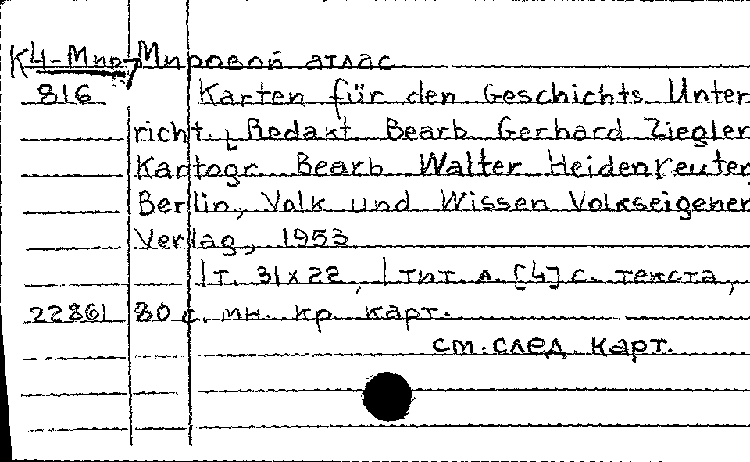 К4-Мир Мировой атлас
816 Karten für den Geschichts Unter
richt. [Redakt Bearb Gerhard Ziegler
Kartogr. Bearb Walter Heidenreuter
Berlin, Volk und Wissen Volkseigener
Verlag, 1953
1 т. 31x22, 1 тит. л. [4] с. текста,
22861 80 с. мн. кр. карт.
см. след. карт.